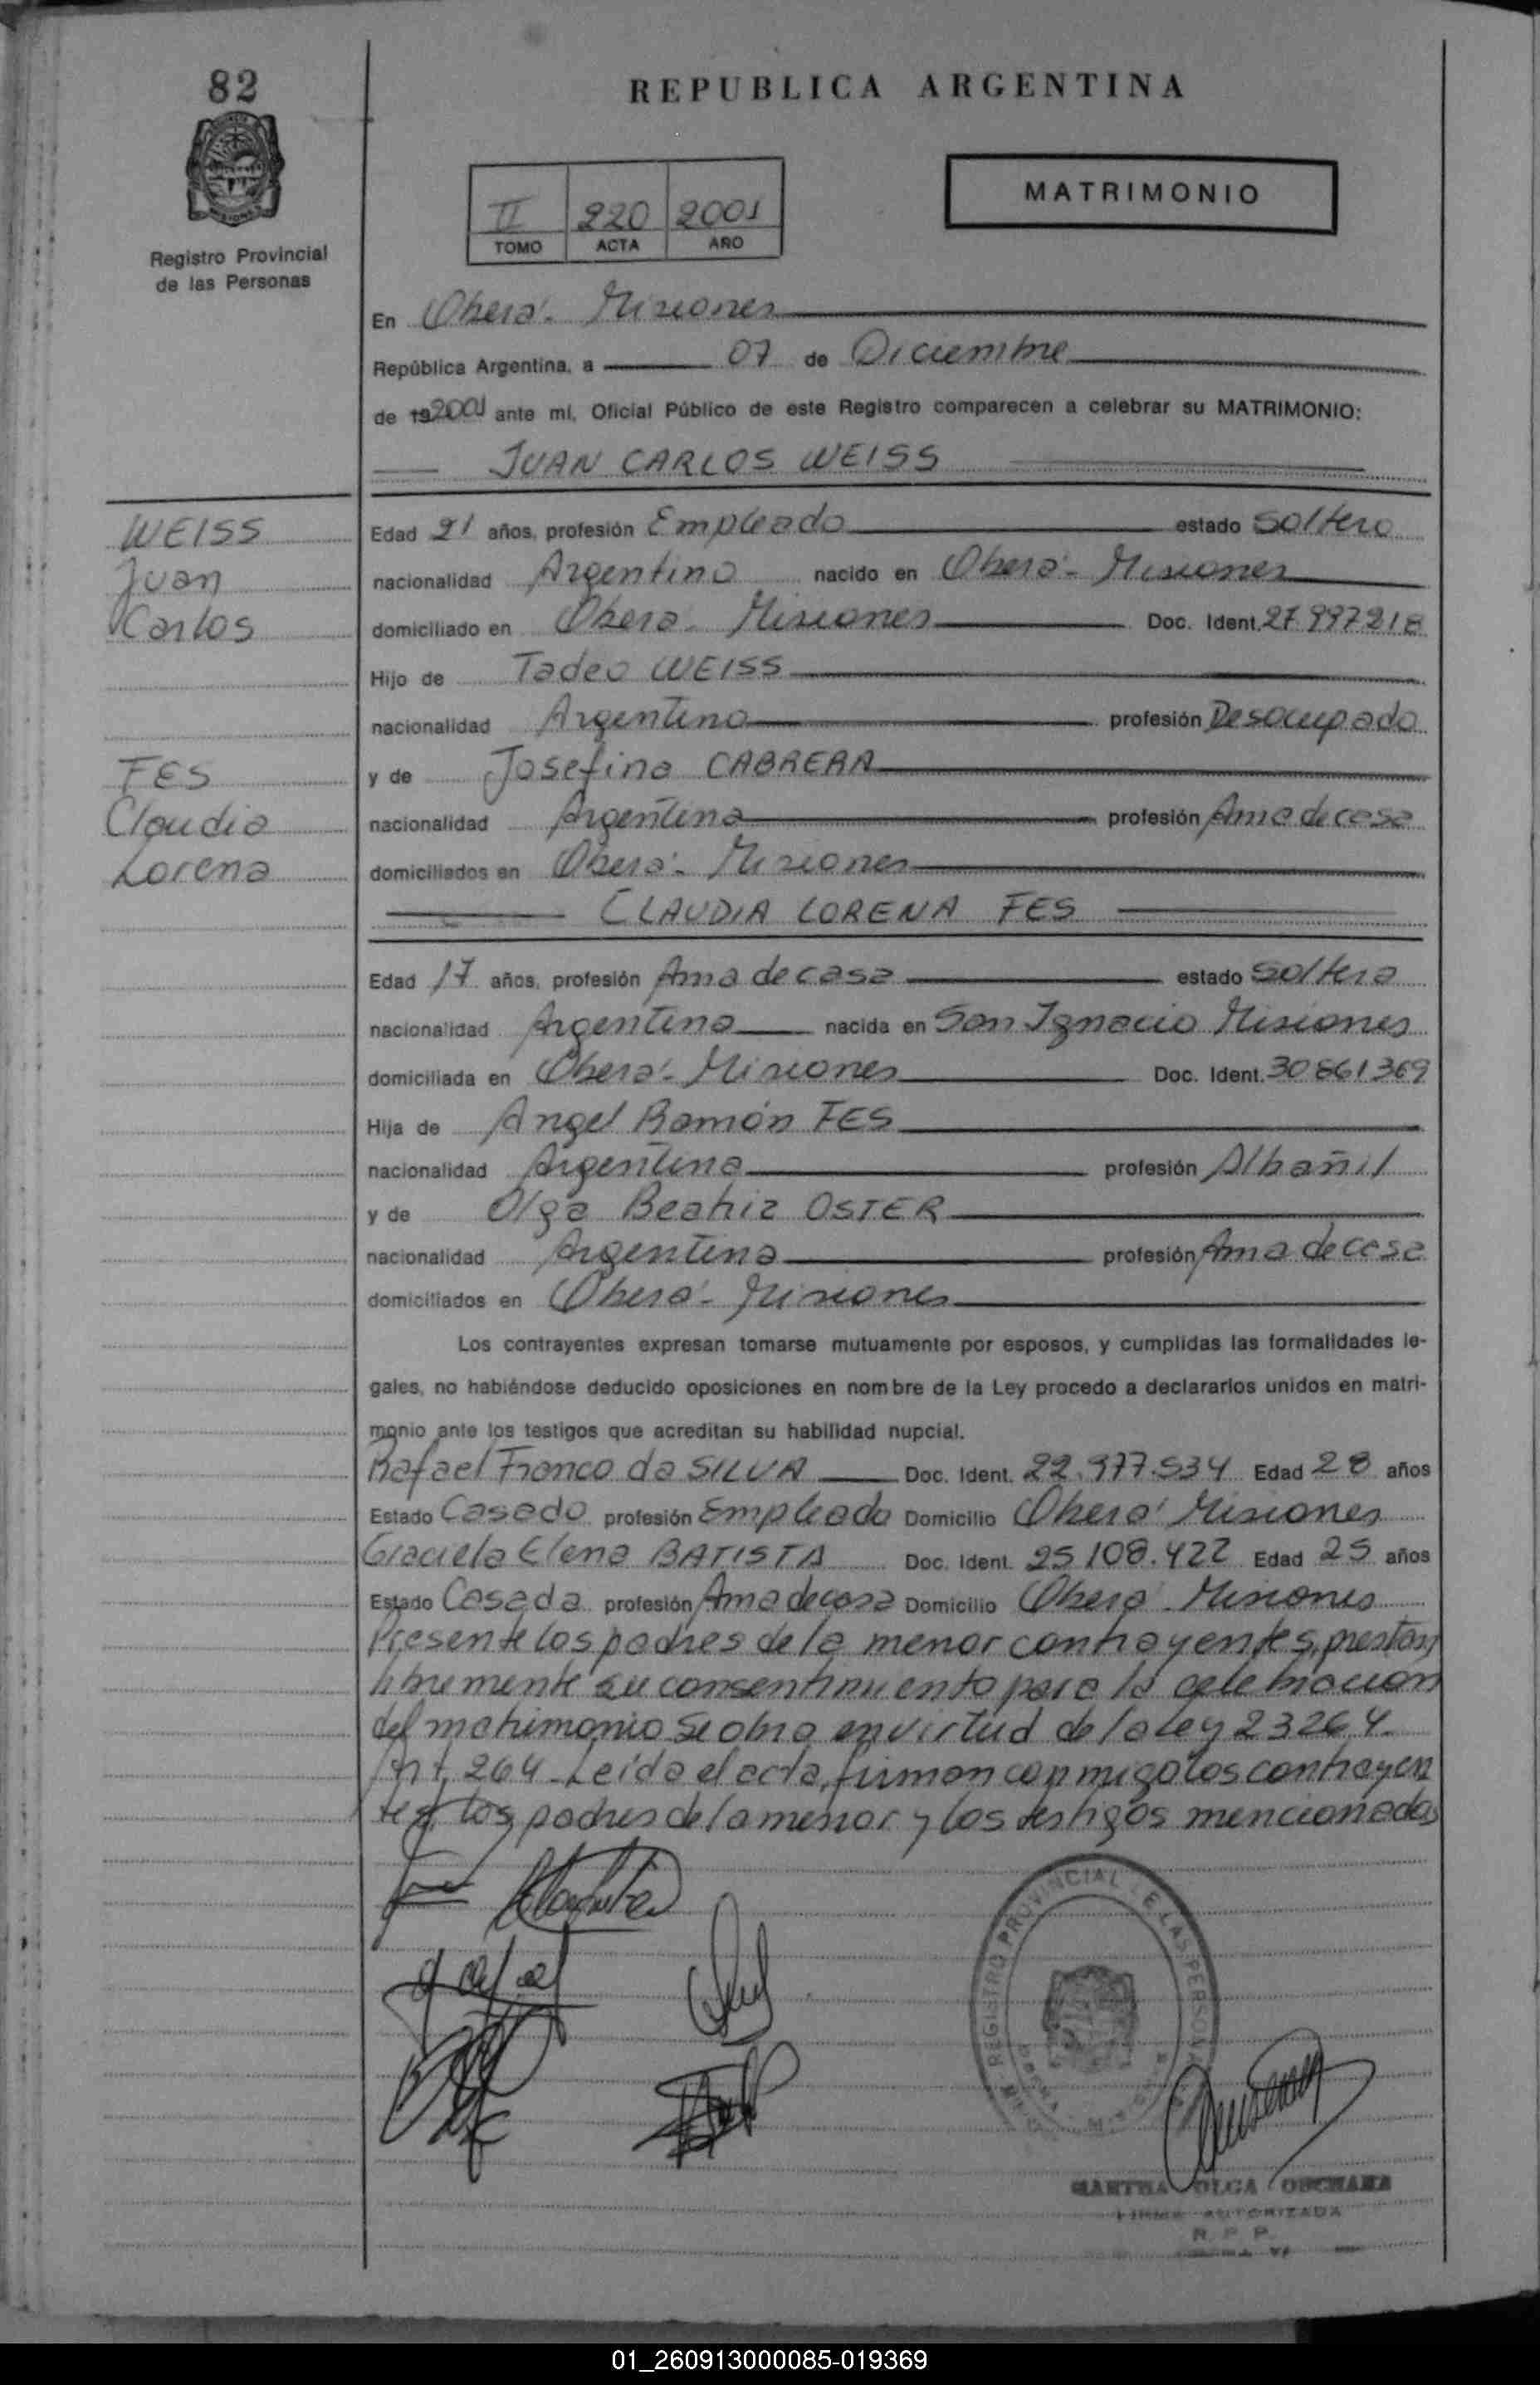 82
REPUBLICA ARGENTINA
MATRIMONIO
II 220 2001
TOMO ACTA AÑO
Registro Provincial
de las Personas
En Oberá - Misiones
República Argentina, a 07 de Diciembre
de 192001 ante mí, Oficial Público de este Registro comparecen a celebrar su MATRIMONIO:
JUAN CARLOS WEISS
WEISS
Juan
Carlos
Edad 21 años, profesión Empleado estado Soltero
nacionalidad Argentino nacido en Oberá - Misiones
domiciliado en Oberá - Misiones Doc. Ident. 27.997218
Hijo de Tadeo WEISS
nacionalidad Argentina profesión Desocupado
y de Josefina CABRERA
nacionalidad Argentina profesión Ama de casa
domiciliados en Oberá - Misiones
FES
Claudia
Lorena
CLAUDIA LORENA FES
Edad 17 años, profesión Ama de casa estado Soltera
nacionalidad Argentina nacida en San Ignacio Misiones
domiciliada en Oberá - Misiones Doc. Ident. 30861369
Hija de Angel Ramón FES
nacionalidad Argentina profesión Albañil
y de Olga Beatriz OSTER
nacionalidad Argentina profesión Ama de casa
domiciliados en Oberá - Misiones
Los contrayentes expresan tomarse mutuamente por esposos, y cumplidas las formalidades le-
gales, no habiéndose deducido oposiciones en nombre de la Ley procedo a declararlos unidos en matri-
monio ante los testigos que acreditan su habilidad nupcial.
Rafael Franco da SILVA Doc. Ident. 22.977.534 Edad 28 años
Estado Casado profesión Empleado Domicilio Oberá Misiones
Graciela Elena BATISTA Doc. Ident. 25108.422 Edad 25 años
Estado Casada profesión Ama de casa Domicilio Oberá - Misiones
Presente los padres de la menor contrayentes, prestan
libremente su consentimiento para la celebración
del matrimonio Se obra en virtud de la Ley 23264.
Art. 264 - Leída el acta, firman conmigo los contrayen
tes, los padres de la menor y los testigos mencionados
REGISTRO PROVINCIAL DE LAS PERSONAS
MARTHA OLGA
FIRMA AUTORIZADA
R. P. P.
01_260913000085-019369